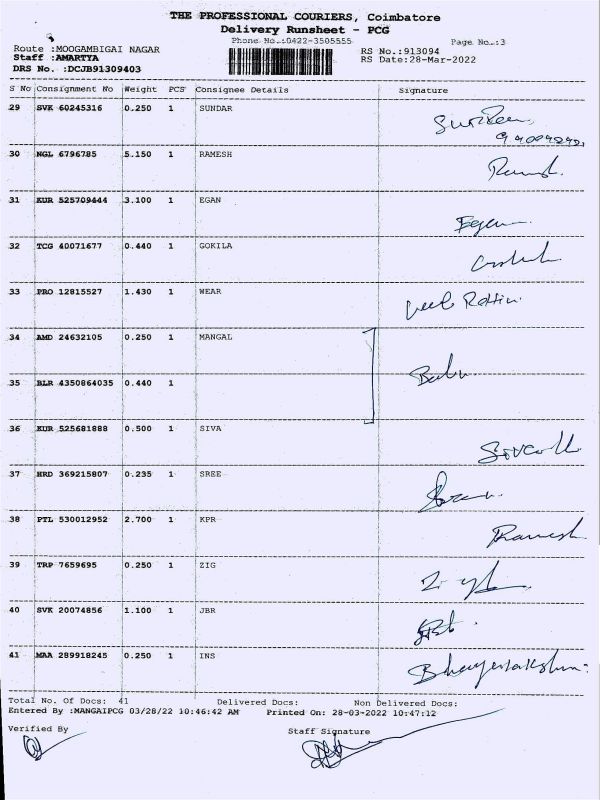 THE PROFESSIONAL COURIERS, Coimbatore
Delivery Runsheet - PCG
Phone No.:0422-3505555 Page No.:3
Route :MOOGAMBIGAI NAGAR RS No.:913094
Staff :AMARTYA RS Date:28-Mar-2022
DRS No. :DCJB91309403
S No Consignment No Weight PCS Consignee Details Signature
29 SVK 60245316 0.250 1 SUNDAR
30 NGL 6796785 5.150 1 RAMESH
31 KUR 525709444 3.100 1 EGAN
32 TCG 40071677 0.440 1 GOKILA
33 PRO 12815527 1.430 1 WEAR
34 AMD 24632105 0.250 1 MANGAL
35 BLR 4350864035 0.440 1
36 KUR 525681888 0.500 1 SIVA
37 HRD 369215807 0.235 1 SREE
38 PTL 530012952 2.700 1 KPR Ramesh
39 TRP 7659695 0.250 1 ZIG
40 SVK 20074856 1.100 1 JBR
41 MAA 289918245 0.250 1 INS
Total No. Of Docs: 41 Delivered Docs: Non Delivered Docs:
Entered By :MANGAIPCG 03/28/22 10:46:42 AM Printed On: 28-03-2022 10:47:12
Verified By Staff Signature